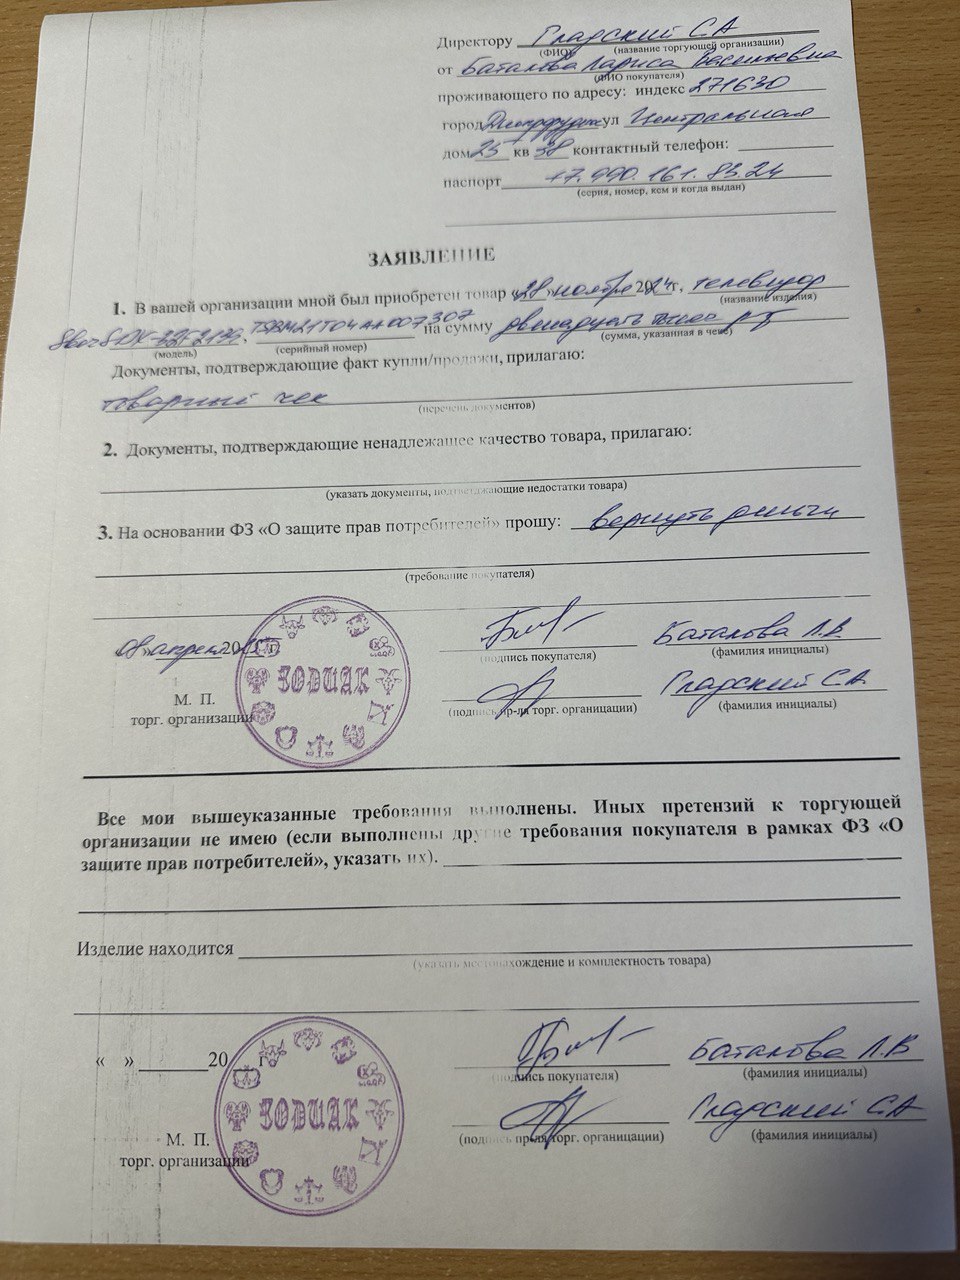 Директору Гладский С.А
(ФИО) (название торгующей организации)
от Баталова Лариса Васильевна
(ФИО покупателя)
проживающего по адресу: индекс 271630
город ул Центральная
дом 25 кв 38 контактный телефон:
паспорт +7.990.161.83.24
(серия, номер, кем и когда выдан)
ЗАЯВЛЕНИЕ
1. В вашей организации мной был приобретен товар «28» ноября 2024г, телевизор
(название изделия)
, на сумму двенадцать
(модель) (серийный номер) (сумма, указанная в чеке)
Документы, подтверждающие факт купли/продажи, прилагаю:
товарный чек
(перечень документов)
2. Документы, подтверждающие ненадлежащее качество товара, прилагаю:
(указать документы, подтверждающие недостатки товара)
3. На основании ФЗ «О защите прав потребителей» прошу: вернуть деньги
(требование покупателя)
апреля 20
(подпись покупателя)
Баталова Л.В.
(фамилия инициалы)
ZODIAK
М. П.
торг. организации
(подпись пр-ля торг. органицации)
Гладский С.А.
(фамилия инициалы)
Все мои вышеуказанные требования выполнены. Иных претензий к торгующей
организации не имею (если выполнены другие требования покупателя в рамках ФЗ «О
защите прав потребителей», указать их).
Изделие находится
(указать местонахождение и комплектность товара)
« » 20 г
(подпись покупателя)
Баталова Л.В
(фамилия инициалы)
ZODIAK
М. П.
торг. организации
(подпись пр-ля торг. органицации)
Гладский С.А
(фамилия инициалы)